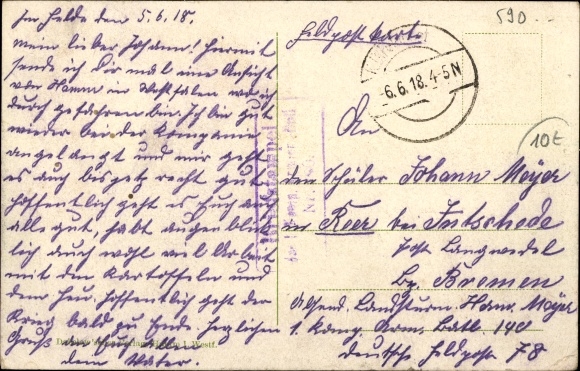 Im Felde den 5.6.18.
Mein lieber Johann! Hiermit
sende ich Dir mal eine Ansicht
von Hamm in Westfalen wo ich
durch gefahren bin. Ich bin gut
wieder bei der Kompanie
angelangt und mir geht
es auch bis jetz recht gut
hoffentlich geht es Euch auch
alle gut, habt augenblick
lich auch wohl viel Arbeit
mit den Kartoffeln und
dem Heu. Hoffentlich geht der
Krieg bald zu Ende. Herzlichen
Gruß an Euch alle
dein Vater.
Feldpostkarte
6.6.18.4-5N
590
10t
An
den Schüler Johann Meyer
in Reer bei Intschede
Post Langwedel
Bz. Bremen
Absend. Landsturm. Meyer
1. Komp. Arm. Batl. 140
deutsche Feldpost 78
Westf.